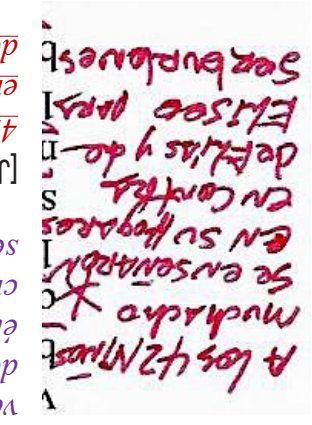 A los 42 Niños
muchacho
se enseñaron
en su hogares
en contra
de Elias y de
Eliseo para
ser burlones